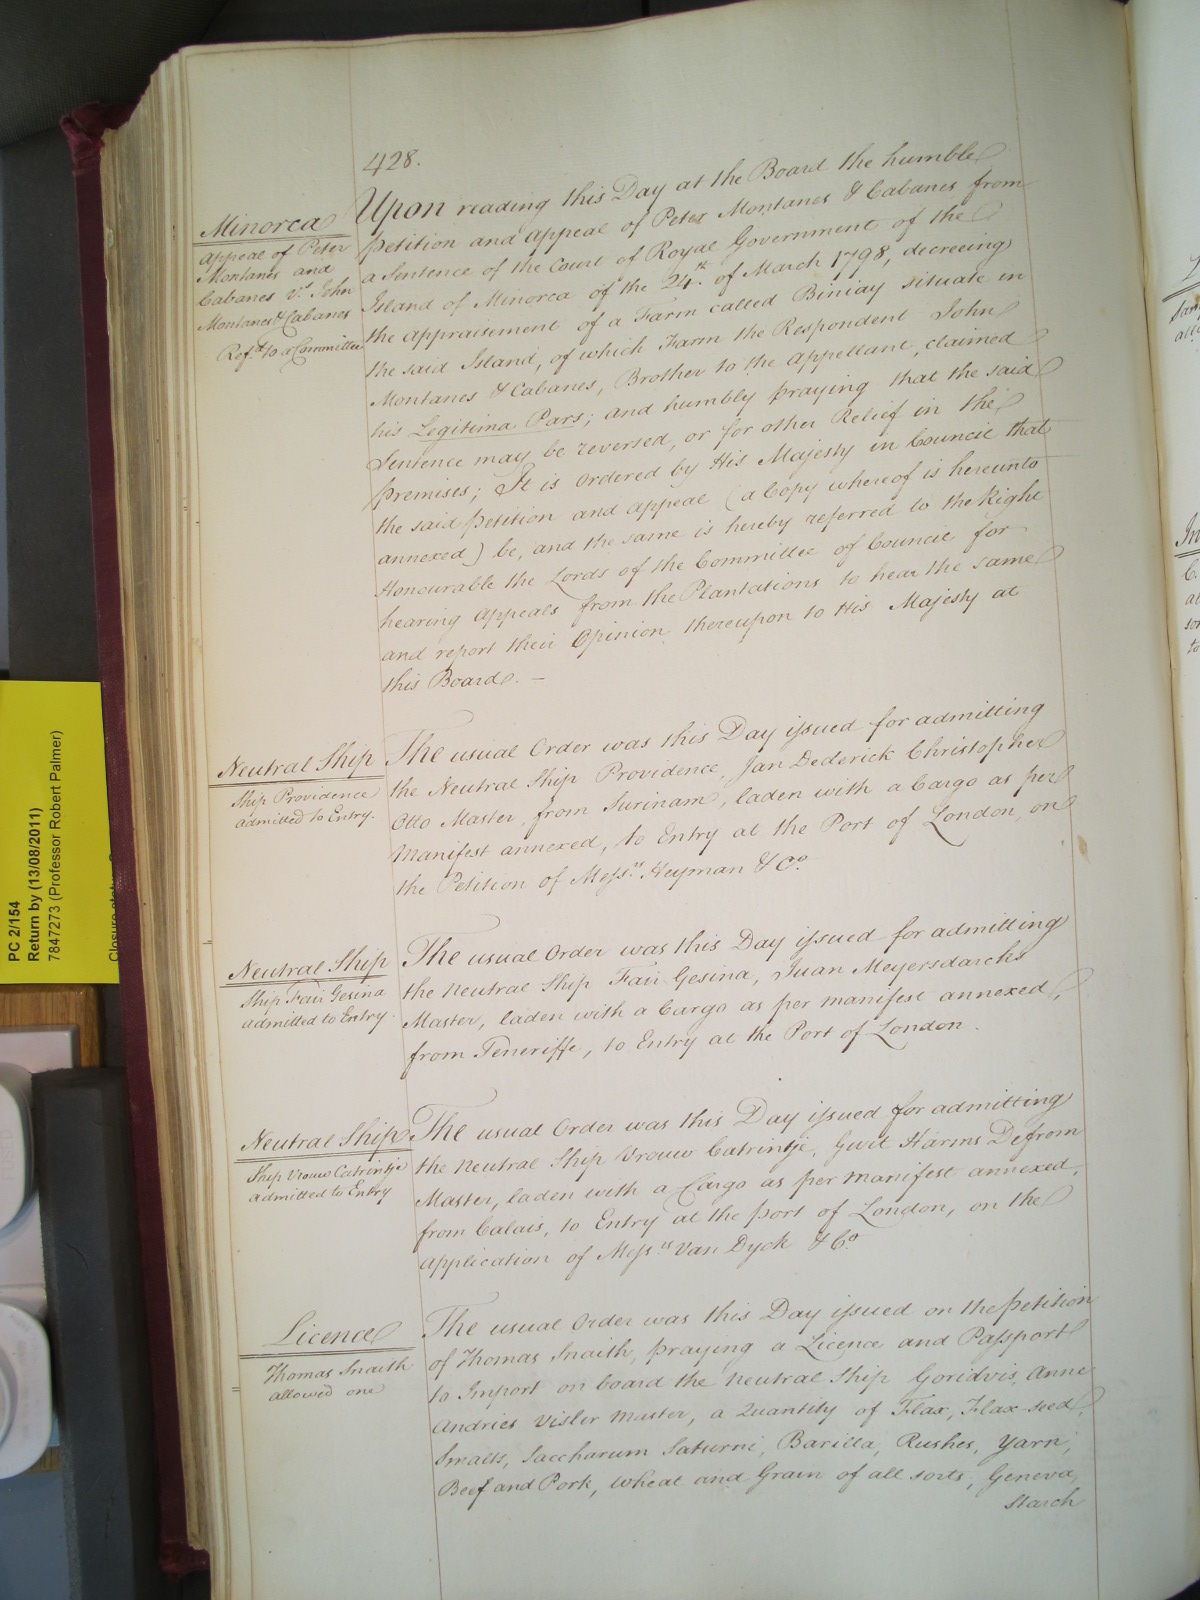 428.
Minorca
Appeal of Peter
Montanes and
Cabanes v.s John
Montanes & Cabanes
Ref.d to a Committee
Upon reading this Day at the Board the humble
Petition and Appeal of Peter Montanes & Cabanes from
a Sentence of the Court of Royal Government of the
Island of Minorca of the 24.th of March 1798, decreeing
the appraisement of a Farm called Biniay situate in
the said Island, of which Farm the Respondent John
Montanes & Cabanes, Brother to the Appellant, claimed
his Legitima Pars; and humbly praying that the said
Sentence may be reversed, or for other Relief in the
premises; It is ordered by His Majesty in Council that
the said Petition and Appeal (a Copy whereof is hereunto
annexed) be, and the same is hereby referred to the Right
Honourable the Lords of the Committee of Council for
hearing Appeals from the Plantations to hear the same
and report their Opinion thereupon to His Majesty at
this Board. —
Neutral Ship
Ship Providence
admitted to Entry.
The usual Order was this Day issued for admitting
the Neutral Ship Providence, Jan Dederick Christopher
Otto Master, from Surinam, laden with a Cargo as per
Manifest annexed, to Entry at the Port of London, on
the Petition of Mess.rs Heyman & Co.
Neutral Ship
Ship Fair Gesina
admitted to Entry
The usual Order was this Day issued for admitting
the Neutral Ship Fair Gesina, Juan Meyersdarchs
Master, laden with a Cargo as per manifest annexed,
from Teneriffe, to Entry at the Port of London.
Neutral Ship
Ship Vrouw Catrintje
admitted to Entry
The usual Order was this Day issued for admitting
the Neutral Ship Vrouw Catrintje, Harms
Master, laden with a Cargo as per manifest annexed,
from Calais, to Entry at the port of London, on the
application of Mess.rs Van Dyck & Co.
Licence
Thomas Snaith
allowed one
The usual Order was this Day issued on the Petition
of Thomas Snaith, praying a Licence and Passport
to Import on board the Neutral Ship Goridvis, Anne
Andries Visser Master, a Quantity of Flax, Flax-seed,
Smalts, Saccharum Saturni, Barilla, Rushes, Yarn,
Beef and Pork, Wheat and Grain of all sorts, Geneva,
Starch
PC 2/154
Return by (13/08/2011)
7847273 (Professor Robert Palmer)